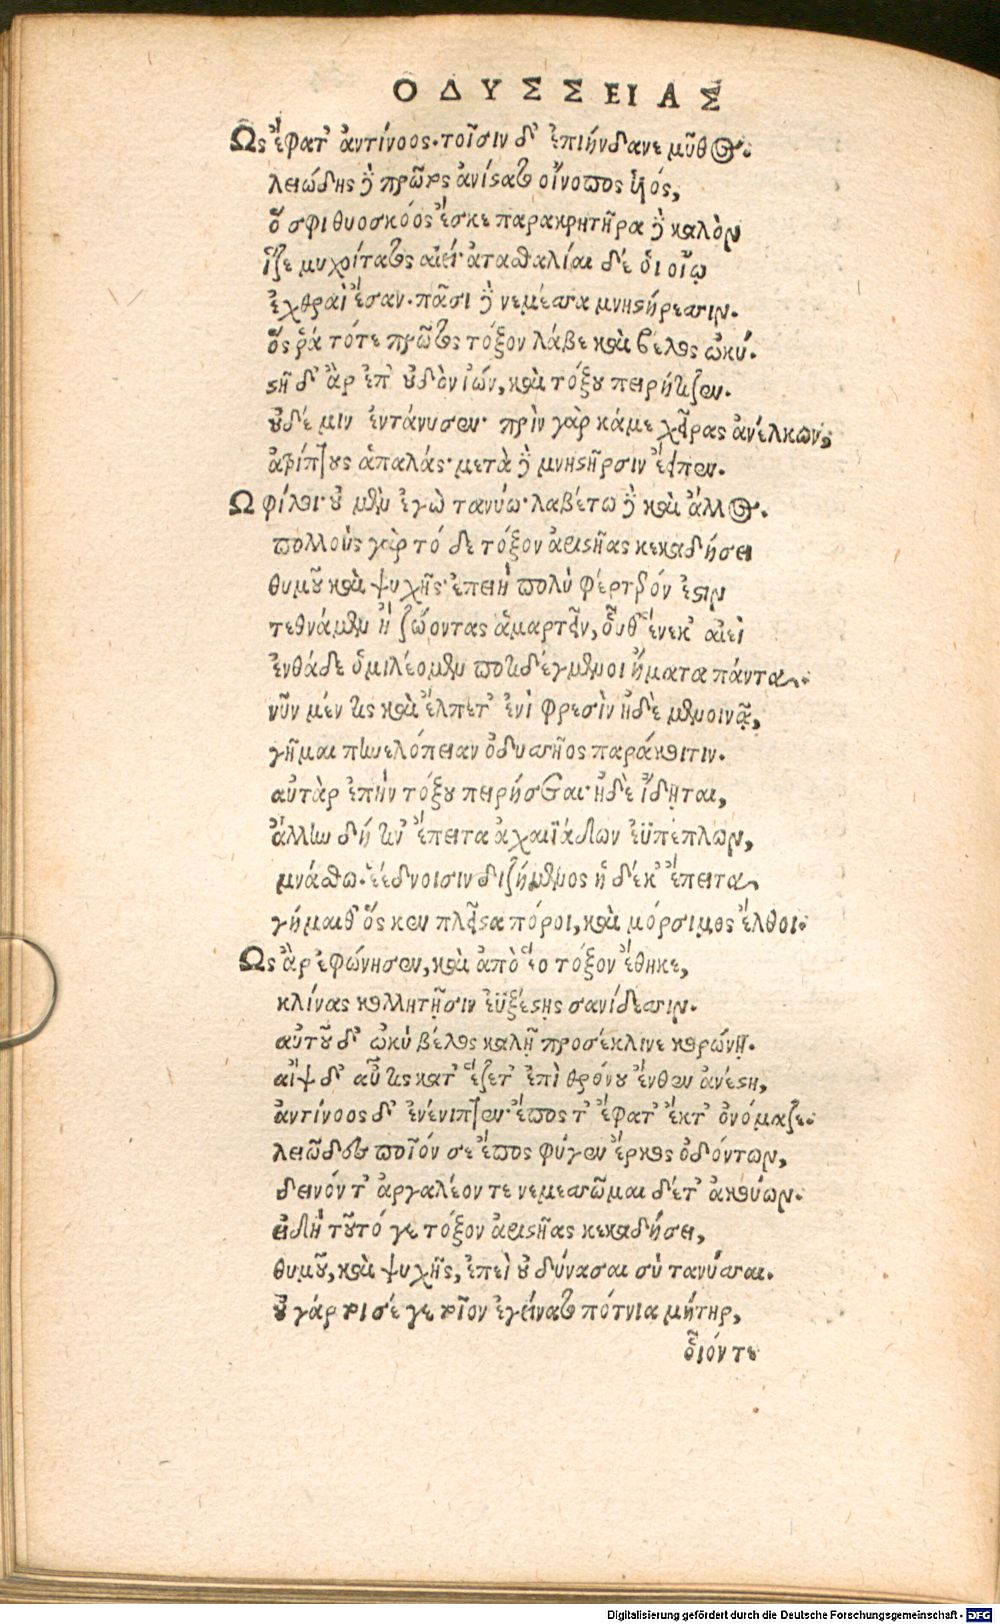 ΟΔΥΣΣΕΙΑΣ
Ως ἔφατ᾽ ἀντίνοος· τοῖσιν δ᾽ ἐπιήνδανε μῦθος.
λειώδης δὲ πρῶτος ἀνίστατο οἴνοπος υἱός,
ὅ σφι θυοσκόος ἔσκε παρα κρητῆρα δὲ καλὸν
ἷζε μυχοίτατος αἰεί· ἀτασθαλίαι δέ ὁι οἴῳ
ἐχθραὶ ἔσαν· πᾶσι δὲ νεμέσσα μνηστήρεσσιν.
ὅς ῥά τότε πρῶτος τόξον λάβε καὶ βέλος ὠκύ.
στῆ δ᾽ ἂρ ἐπ᾽ οὐδὸν ἰών, καὶ τόξου πειρήτιζεν.
οὐδέ μιν ἐντάνυσεν· πρὶν γὰρ κάμε χεῖρας ἀνέλκων,
ἀτρίπτους ἁπαλάς· μετὰ δὲ μνηστῆρσιν ἔειπεν.
Ω φίλοι· οὐ μὲν ἐγὼ τανύω· λαβέτω δὲ καὶ ἄλλος.
πολλοὺς γὰρ τό δε τόξον ἀριστῆας κεκαδήσει
θυμοῦ καὶ ψυχῆς· ἐπειὴ πολὺ φέρτερόν ἐστιν
τεθνάμεν ἢ ζώοντας ἁμαρτεῖν, οὗθ᾽ ἕνεκ᾽ αἰεὶ
ἐνθάδε ὁμιλέομεν ποτιδέγμενοι ἤματα πάντα.
νῦν μέν τις καὶ ἔλπετ᾽ ἐνὶ φρεσὶν ἠδὲ μενοινᾷ,
γῆμαι πηνελόπειαν ὀδυσσῆος παράκοιτιν.
αὐτὰρ ἐπὴν τόξου πειρήσεται· ἠδὲ ἴδηται,
ἄλλην δή τιν᾽ ἔπειτα ἀχαιϊάδων ἐϋπέπλων,
μνάσθω· ἐέδνοισιν διζήμενος ἣ δέκ᾽ ἔπειτα
γήμαιθ᾽ ὅς κεν πλεῖστα πόροι, καὶ μόρσιμος ἔλθοι.
Ως ἂρ ἐφώνησεν, καὶ ἀπὸ ἕο τόξον ἔθηκε,
κλίνας κολλητῇσιν ἐϋξέστης σανίδεσσιν.
αὐτοῦ δ᾽ ὠκὺ βέλος καλῇ προσέκλινε κορώνῃ.
αἲψ δ᾽ αὖτις κατ᾽ ἕζετ᾽ ἐπὶ θρόνου ἔνθεν ἀνέστη,
ἀντίνοος δ᾽ ἐνένιπτεν· ἔπος τ᾽ ἔφατ᾽ ἔκτ᾽ ὀνόμαζε.
λειῶδες ποῖόν σε ἔπος φύγεν ἕρκος ὀδόντων,
δεινόν τ᾽ ἀργαλέον τε νεμεσσῶμαι δέτ᾽ ἀκούων.
εἰδὴ τοῦτό γε τόξον ἀριστῆας κεκαδήσει,
θυμοῦ, καὶ ψυχῆς, ἐπεὶ οὐ δύνασαι σὺ τανύσσαι.
οὐ γάρ τοι σέ γε τοῖον ἐγείνατο πότνια μήτηρ,
οἷόν τε
Digitalisierung gefördert durch die Deutsche Forschungsgemeinschaft - DFG